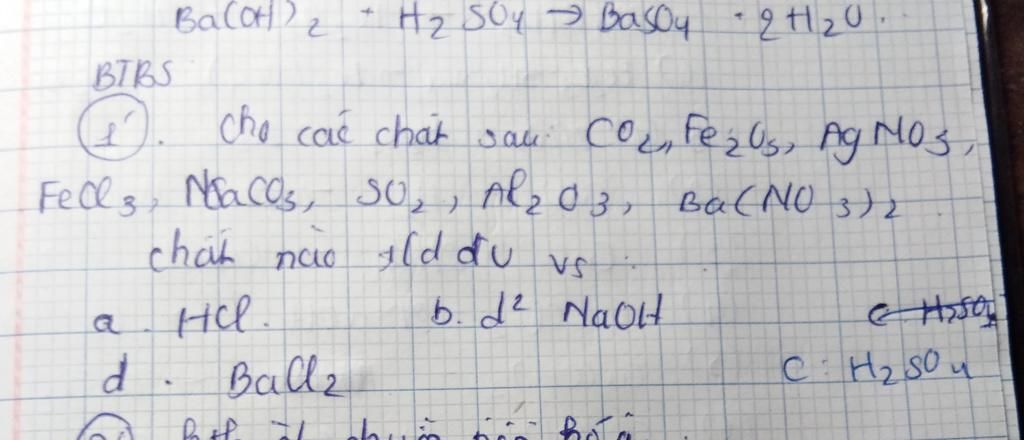 Ba(OH)2 + H2SO4 → BaSO4 + 2H2O.
BTBS
1. Cho các chất sau: CO2, Fe2O3, AgNO3,
FeCl3, NaCO3, SO2, Al2O3, Ba(NO3)2
chất nào t/d đc vs :
a. HCl. b. d² NaOH
d. BaCl2 c: H2SO4